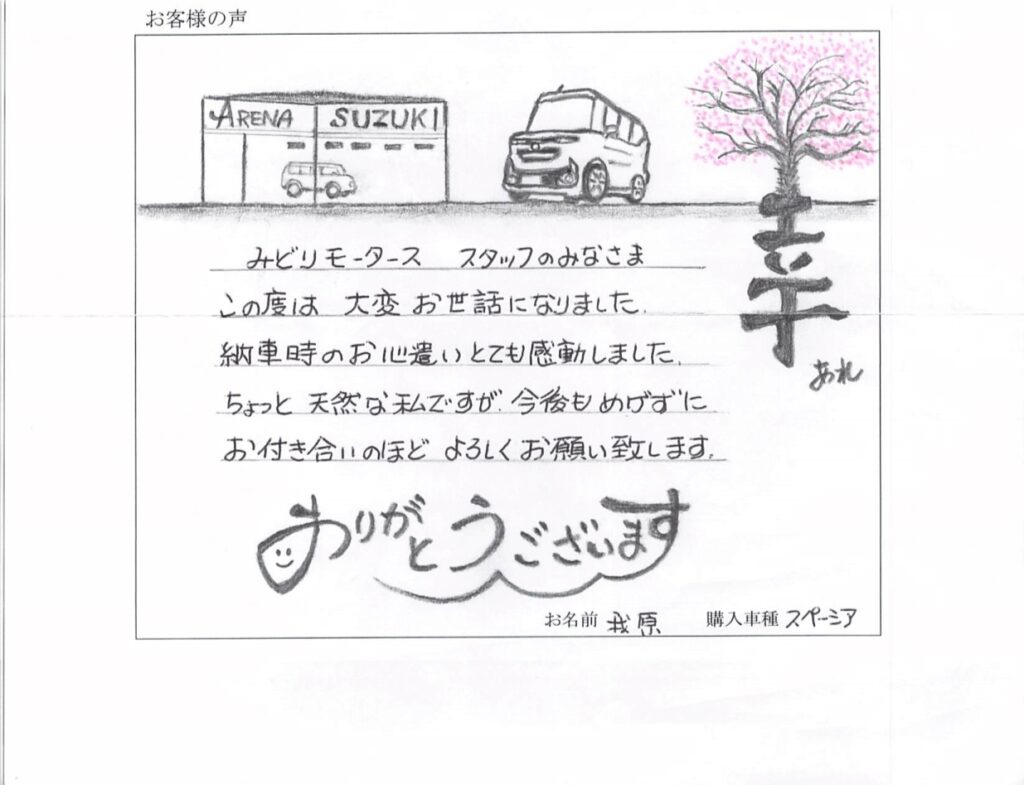 お客様の声
ARENA SUZUKI
幸
あれ
みどりモータース スタッフのみなさま
この度は 大変 お世話になりました.
納車時のお心遣いとても感動しました.
ちょっと 天然な私ですが、今後も めげずに
お付き合いのほど よろしくお願い致します.
ありがとうございます
お名前 我原 購入車種 スペーシア